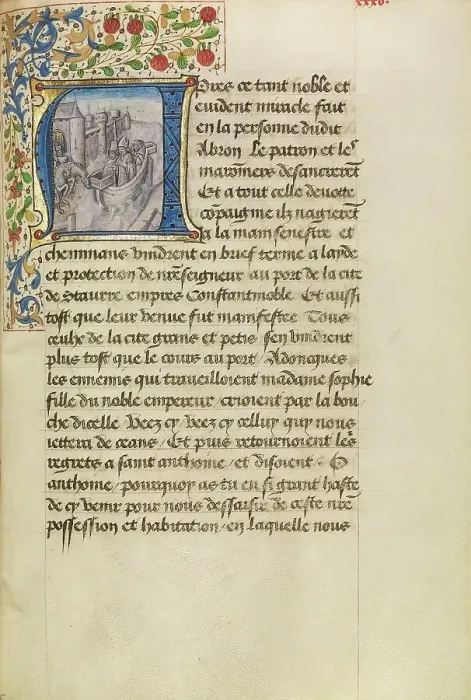 xxxv.
Apres ce tant noble et
euident miracle fait
en la personne dudit
Abron Le patron et les
maronniers desancrerent
Et a tout celle deuote
copaignie ilz nagierent
a la main senestre et
cheminans vindrent en brief terme a layde
et protection de nreseigneur au port de la cite
de Staurre empres Constantinoble Et aussi
tost que leur venue fut manifestee Tous
ceulx de la cite grans et petis sen vindrent
plus tost que le cours au port / Adoncques
les ennemis qui trauueilloient madame sophie
fille du noble empereur crioient par la bou
che dicelle Veez cy veez cy celluy quy nous
iettera de ceans / Et puis retournoient les
regrets a saint anthoine / et disoient · O
anthoine / pourquoy as tu eu si grant haste
de cy venir pour nous dessaisir de ceste nre
possession et habitation / en laquelle nous